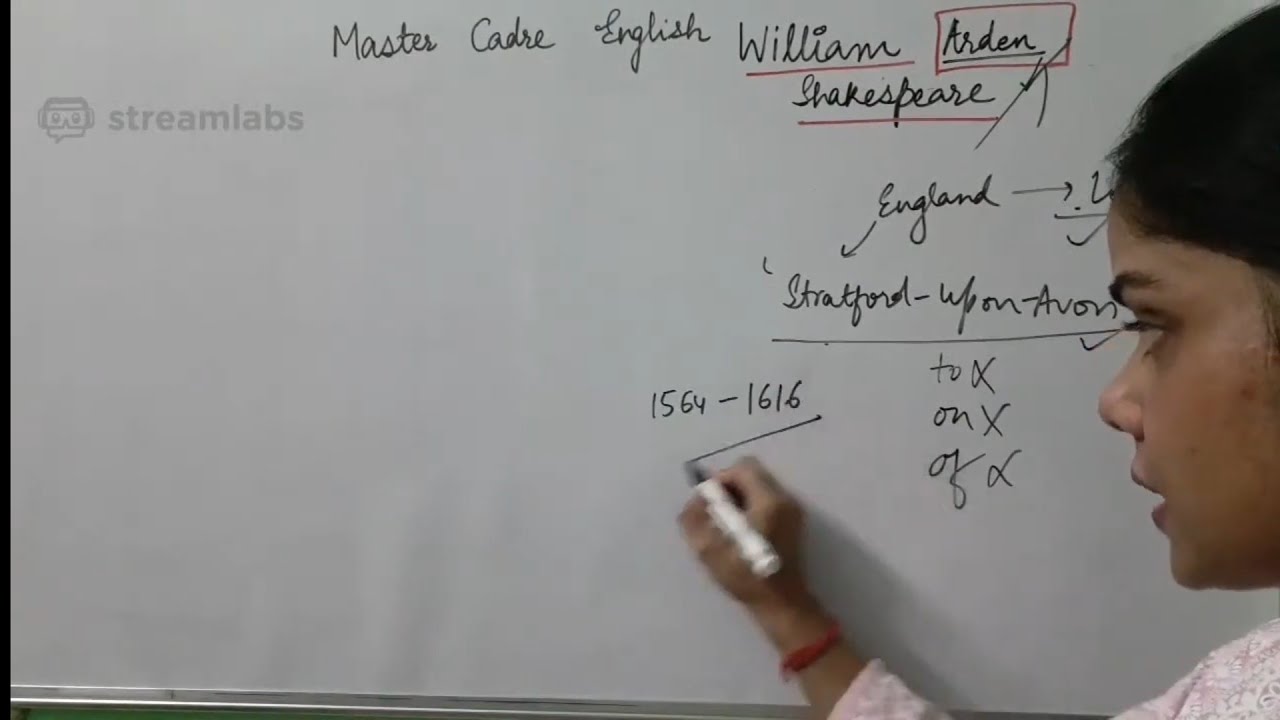 Master Cadre English William Arden
Shakespeare
streamlabs
England →
Stratford-Upon-Avon
to X
1564 – 1616
on X
of X